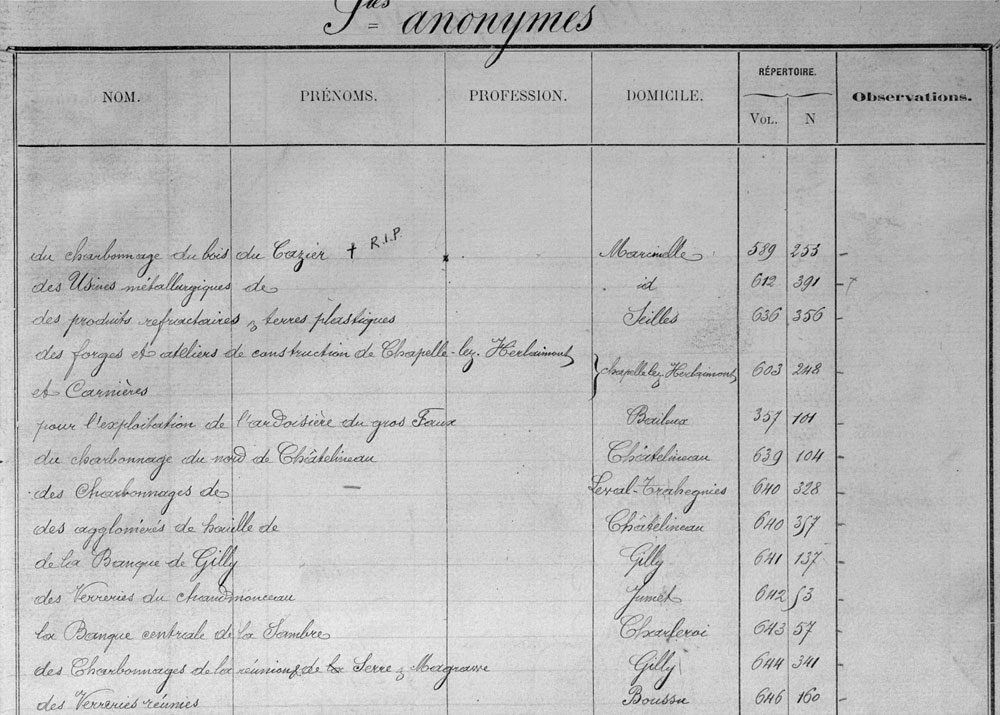 Stés anonymes
RÉPERTOIRE.
NOM. PRÉNOMS. PROFESSION. DOMICILE. VOL. N Observations.
du charbonnage du bois du Cazier † R.I.P. Marcinelle 589 253 -
des Usines métallurgiques de id 612 391 -
des produits refractaires & terres plastiques Seilles 636 356 -
des forges et ateliers de construction de Chapelle-lez-Herlaimont
et Carnières } chapelle lez Herlaimont 603 248 -
pour l'exploitation de l'ardoisière du gros Faux Baileux 357 101 -
du charbonnage du nord de Châtelineau Châtelineau 639 104 -
des Charbonnages de — Leval-Trahegnies 640 328 -
des agglomérés de houille de Châtelineau 640 357 -
de la Banque de Gilly Gilly 641 137 -
des Verreries du chaudmonceau Jumet 642 53 -
la Banque centrale de la Sambre Charleroi 643 57 -
des Charbonnages de la réunion de la Serre & Gilly 644 341 -
des Verreries réunies Boussu 646 160 -